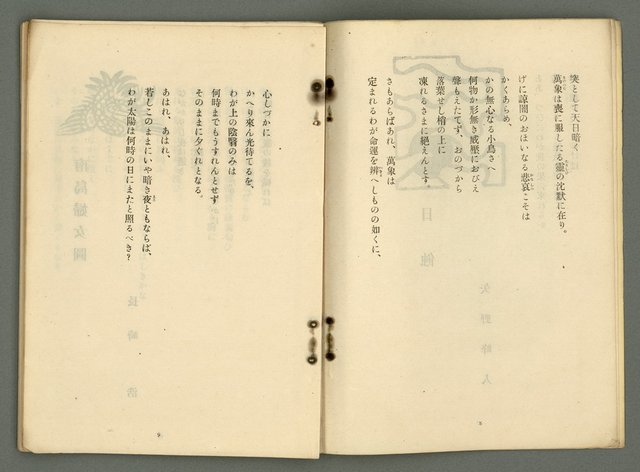 突として天日暗く
萬象は喪に服したる靈の沈默に在り。
げに諒闇のおほいなる悲哀こそは
かくあらめ、
かの無心なる小鳥さへ
何物か形無き威壓におびえ
聲もえたてず、おのづから
落葉せし梢の上に
凍れるさまに絶えんとす。
さもあらばあれ、萬象は
定まれるわが命運を辨へしものの如くに、
8
心しづかに
かへり來ん光待てるを、
わが上の陰翳のみは
何時までもうすれんとせず
そのままに夕ぐれとなる。
あはれ、あはれ、
若しこのままにいや暗き夜ともならば、
わが太陽は何時の日にまたと照るべき?
9